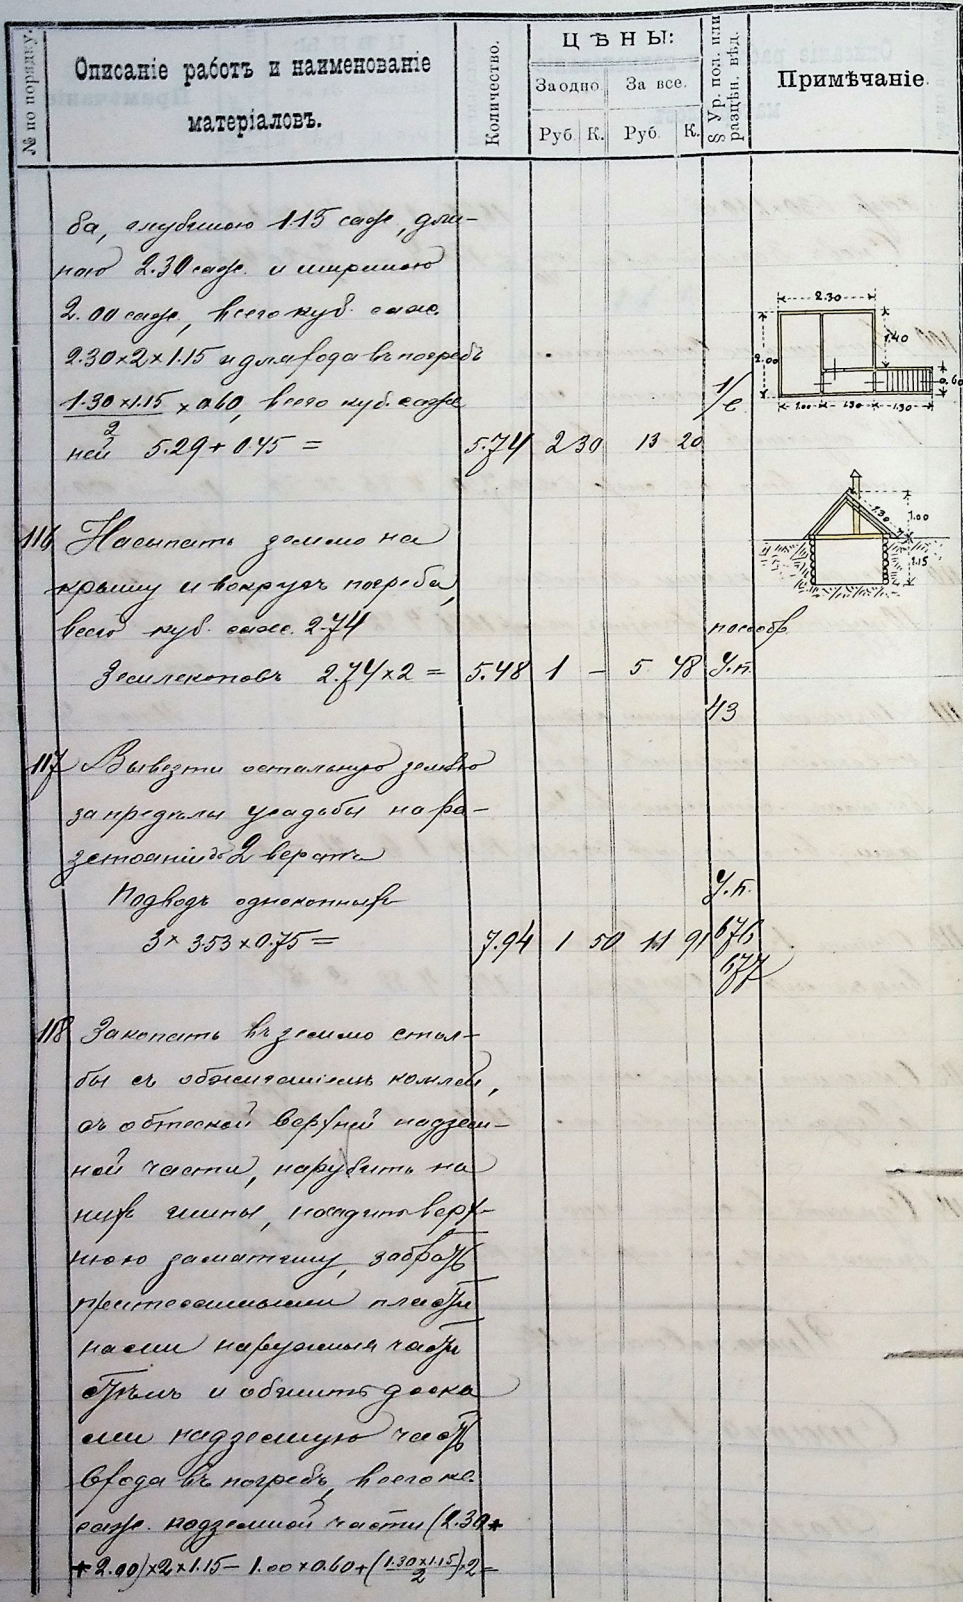 № по порядку.
Описаніе работъ и наименованіе
матеріаловъ.
Количество.
ЦѢНЫ:
За одно
За все.
Руб. К. Руб. К.
§ Ур. пол. или
разцѣн. вѣд.
Примѣчаніе.
ба, глубиною 1.15 саж., дли-
ною 2.30 саж. и шириною
2.00 саж., всего куб. саж.
2.30×2×1.15 и для входа въ погребъ
1.30×1.15/2 × 0.60, всего куб. саже
ней 5.29 + 0.45 = 5.74 2 30 13 20
2.30
2.00
1.40
0.60
1.00 1.30 1.30
116 Насыпать землю на
крышу и вокругъ погреба,
всего куб. саж. 2.74
Землекоповъ 2.74×2 = 5.48 1 – 5 48 У.п.
43
1.30
1.00
1.15
117 Вывезти остальную землю
за предѣлы усадьбы на ра-
зстояніи до 2 верстъ
Подводъ одноконныхъ У.п.
3 × 3.53 × 0.75 = 7.94 1 50 11 91 676
677
118 Закопать въ землю стол-
бы съ обжиганіемъ комлей,
съ обтеской верхней надзем-
ной части, нарубить на
нихъ шипы, насадить верх-
нюю заматину, забрать
притесанными пласти
нами наружныя части
стѣнъ и обшить доска
ми надземную часть
входа въ погребъ, всего кв.
саж. подземной части (2.30+
+2.00)×2×1.15 – 1.00×0.60+(1.30×1.15/2)×2=